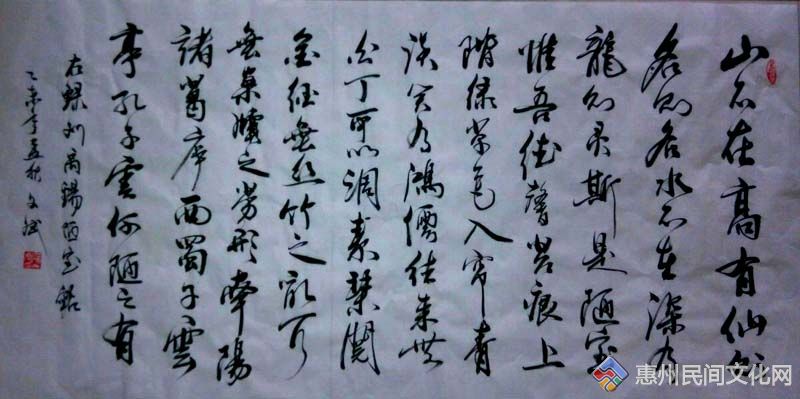 山不在高有仙则
名则名水不在深有
龍则灵斯是陋室
惟吾德馨苔痕上
階绿草色入帘青
谈笑有鸿儒往来無
白丁可以调素琴閲
金经無丝竹之乱耳
無案牘之劳形南陽
諸葛庐西蜀子雲
亭孔子雲何陋之有
右録刘禹锡陋室铭
乙未年孟秋文斌
惠州民间文化网